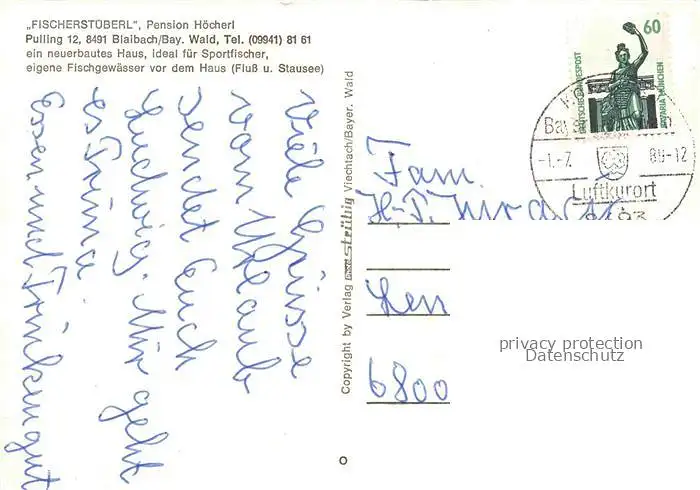 „FISCHERSTÜBERL", Pension Höcherl
Pulling 12, 8491 Blaibach/Bay. Wald, Tel. (09941) 81 61
ein neuerbautes Haus, ideal für Sportfischer,
eigene Fischgewässer vor dem Haus (Fluß u. Stausee)
Viele Grüsse
vom Urlaub
sendet Euch
Ludwig. Mir geht
es Prima.
Essen und Trinken gut
Copyright by Verlag strühig Viechtach/Bayer. Wald
60
DEUTSCHE BUNDESPOST
BAVARIA MÜNCHEN
Bay
-1.-7. 89-12
Luftkurort
8493
Fam.
H.-P.
Herr
6800
privacy protection
Datenschutz